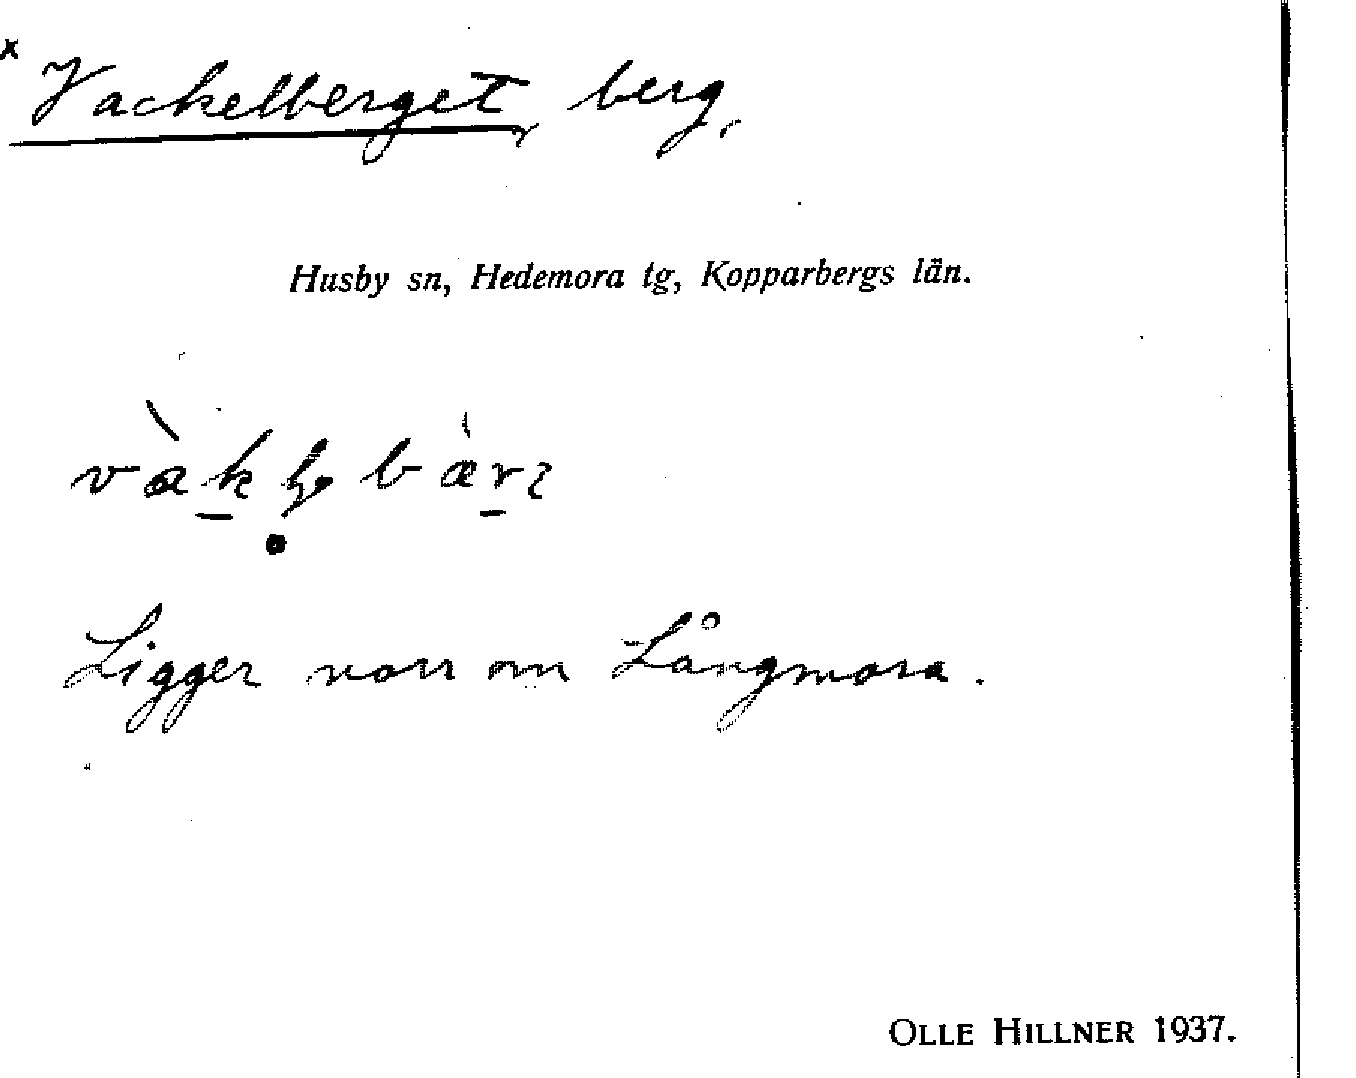 x Vackelberget, berg,
Husby sn, Hedemora tg, Kopparbergs län.
Ligger norr om Långmora.
OLLE HILLNER 1937.